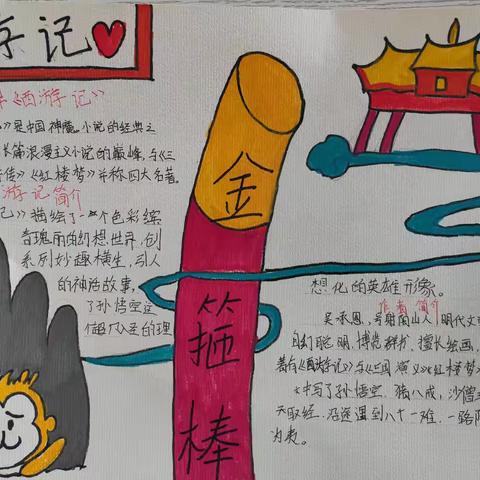 游记
《西游记》
》是中国神魔小说的经典之
长篇浪漫主义小说的巅峰,与《三
传》《红楼梦》并称四大名著。
游记简介
记》描绘了一个色彩缤
奇瑰丽的幻想世界,创
系列妙趣横生,引人
的神话故事,
了孙悟空这
金箍棒
想化的英雄形象。
作者简介
吴承恩,号射阳山人,明代文
自幻聪明,博览群书,擅长绘画,
著有《西游记》与《三国演义》《红楼梦》
中写了孙悟空、猪八戒,沙僧
天取经,沿途遇到八十一难,一路
为